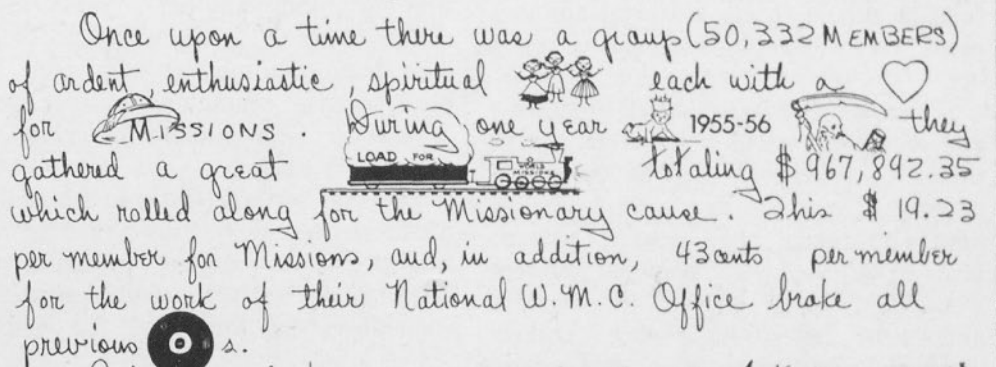 Once upon a time there was a group (50,332 MEMBERS)
of ardent, enthusiastic, spiritual each with a
for MISSIONS. During one year 1955-56 they
gathered a great LOAD FOR WORLD MISSIONS totaling $967,892.35
which rolled along for the Missionary cause. This $19.23
per member for Missions, and, in addition, 43 cents per member
for the work of their National W.M.C. Office brake all
previous s.